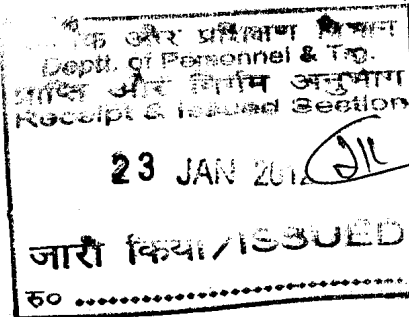 और प्रशिक्षण विभाग
Deptt. of Personnel & Trg.
प्राप्ति और निर्गम अनुभाग
Receipt & Issued Section
23 JAN 2012
जारी किया/ISSUED
रु०